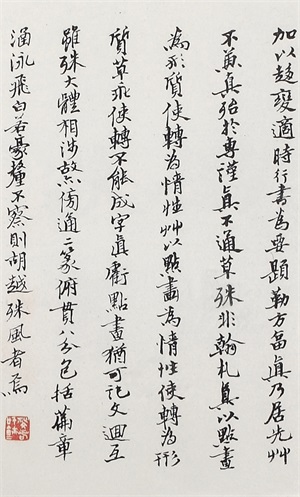 加以趍變適時行書為要題勒方畐真乃居先艸
不兼真殆於專謹真不通草殊非翰札真以點畫
為形質使轉為情性艸以點畫為情性使轉為形
質草乖使轉不能成字真虧點畫猶可記文迴互
雖殊大體相涉故亦傍通二篆俯貫八分包括篇章
涵泳飛白若豪釐不察則胡越殊風者焉